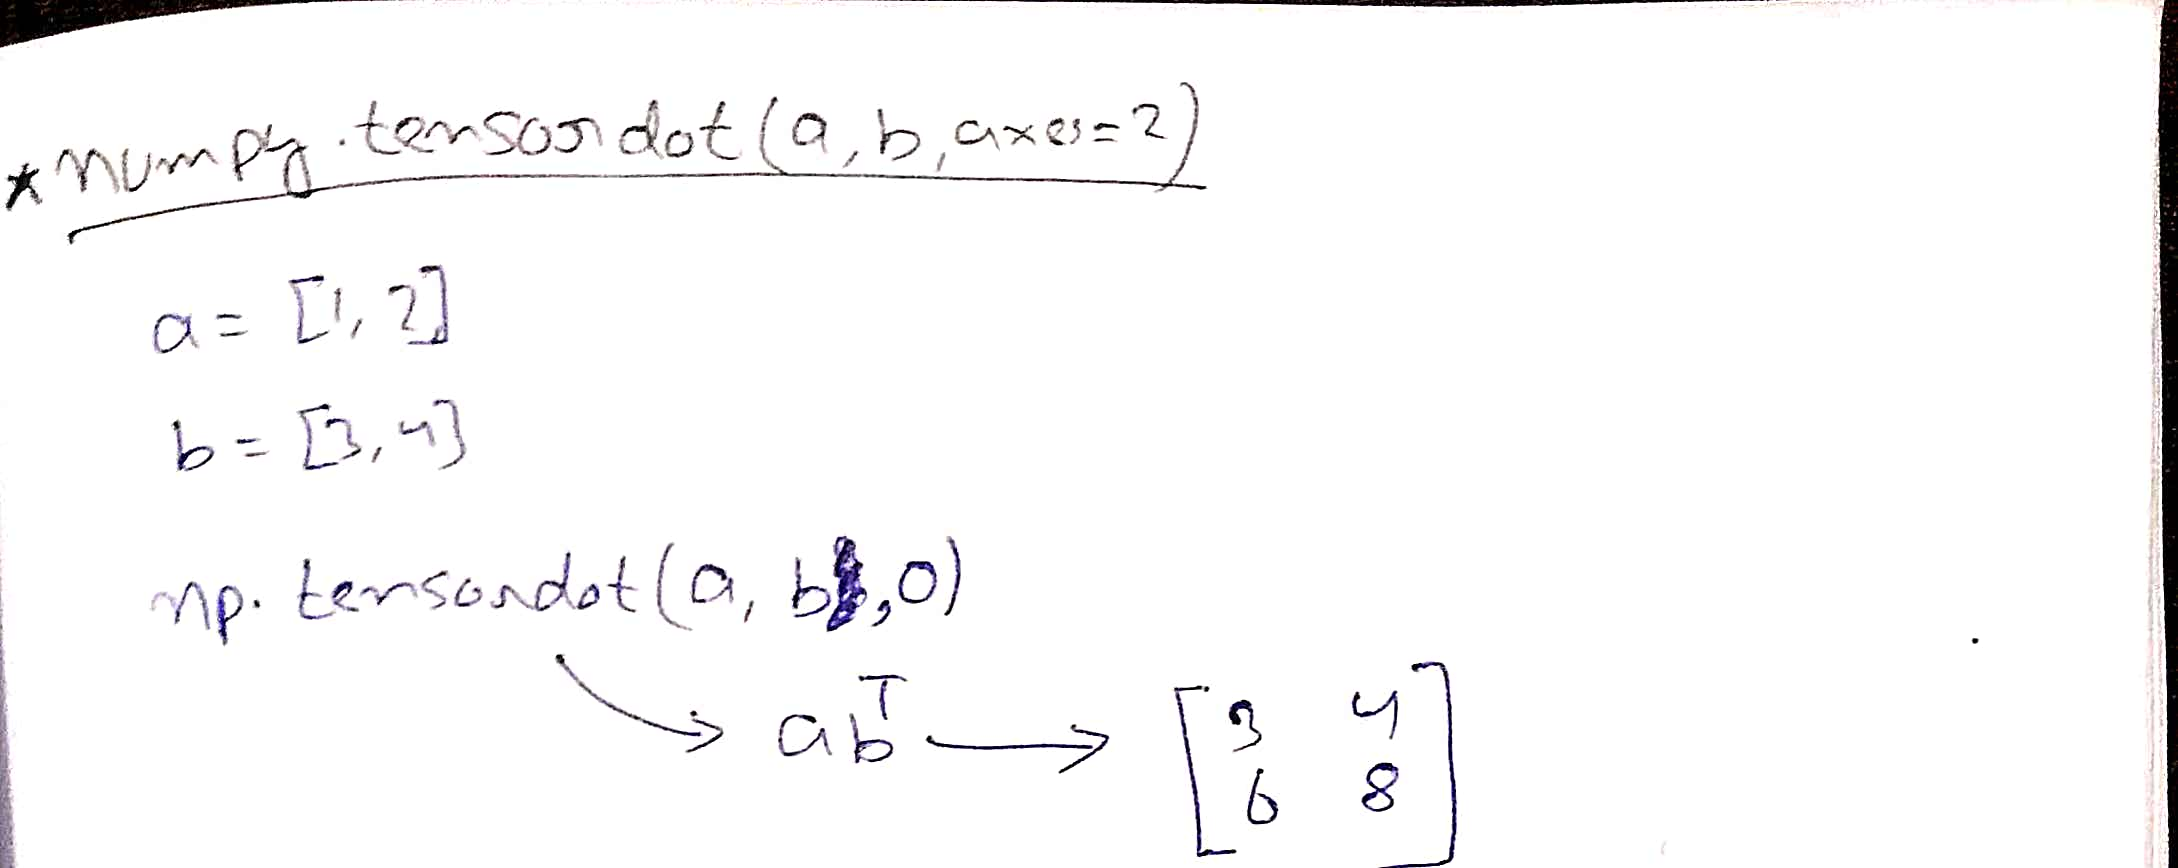 * numpy.tensordot(a,b,axes=2)
a = [1, 2]
b = [3, 4]
np.tensordot(a, b,0)
abᵀ → [3 4
6 8]